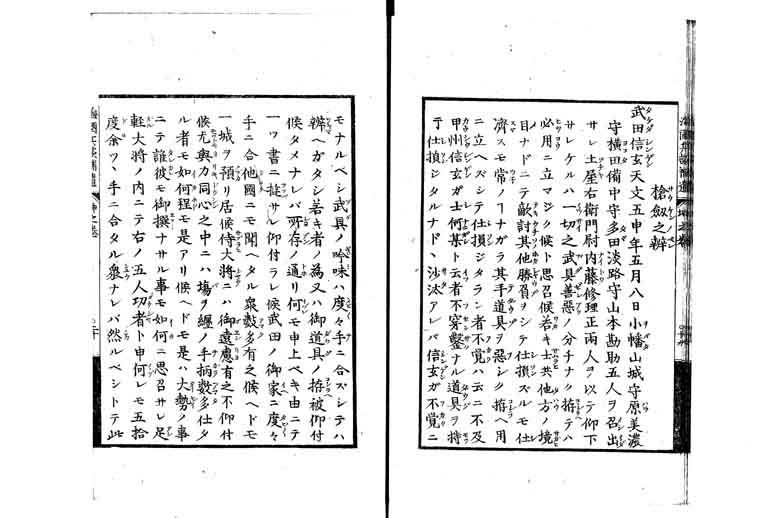 槍劔之辨
武田信玄天文五申年五月八日小幡山城守原美濃
守横田備中守多田淡路守山本勘助五人ヲ召出
サレ土屋右衛門尉内藤修理正兩人ヲ以テ仰下
サレケルハ一切之武具善惡ノ分チナク拵テハ
必用ニ立マジク候ト思召候若キ士共他方ノ境
目ナドニテ敵討其他勝負ヲシテ仕損ズルモ仕
濟スモ常ノヿナガラ其手道具ヲ惡シク拵ヘ用
ニ立ヘズシテ仕損ジタラン者不覺ハ云ニ不及
甲州信玄ガ士何某ト云者不穿鑿ナル道具ヲ持
テ仕損ジタルナドヽ沙汰アレバ信玄ガ不覺ニ
モナルベシ武具ノ吟味ハ度々手ニ合ズシテハ
辨ヘガタシ若キ者ノ為又ハ御道具ノ拵被仰付
候タメナレバ所存ノ通リ何モ申上ベキ由ニテ
一ツ書ニ㨗サレ仰付ラレ候武田ノ御家ニ度々
手ニ合他國ニモ聞ヘタル衆數多有之候ヘドモ
一城ヲ預リ居候侍大將ニハ御遠慮有之不仰付
候尤與力同心之中ニハ場ヲ纒ノ手柄數多仕タ
ル者モ如何程モ是アリ候ヘドモ是ハ大勢ノ事
ニテ誰彼モ御撰ナサル事モ如何ニ思召サレ足
輕大將ノ内ニテ右ノ五人功者ト申何レモ五拾
度余ツヽ手ニ合タル衆ナレバ然ルベシトテ此